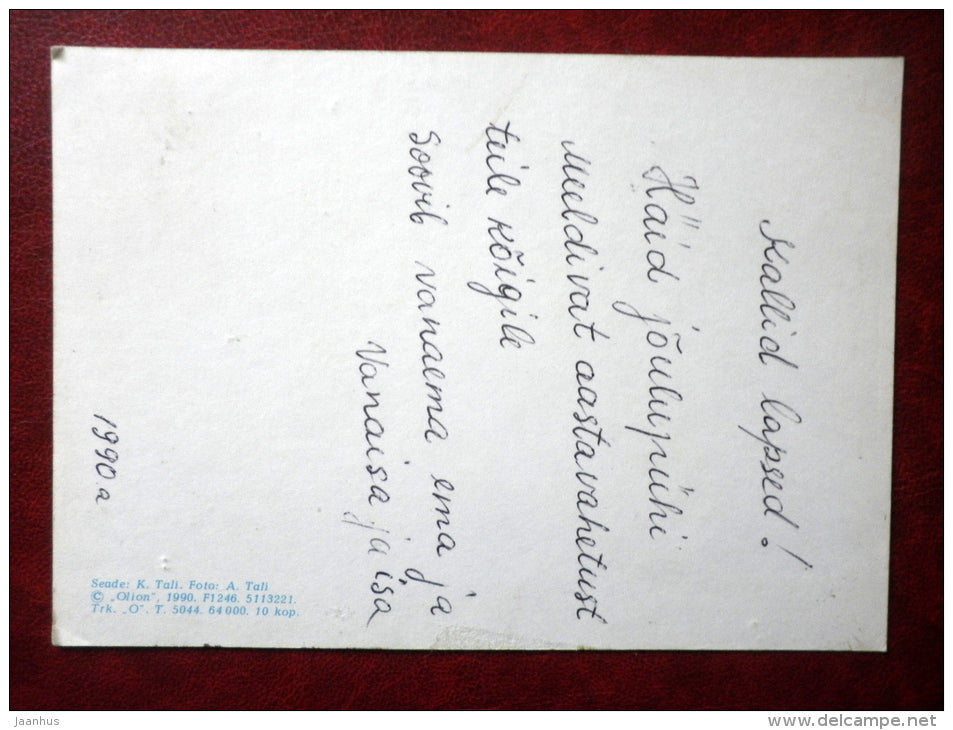 Kallid lapsed!
Häid jõulupühi
Meeldivat aastavahetust
teile kõigile
Soovib vanaema ema ja
Vanaisa ja isa
1990 a
Seade: K. Tali. Foto: A. Tali
© „Olion", 1990. F1246. 5113221.
Trk. „O". T. 5044. 64 000. 10 kop.
jaanhus
www.delcampe.net